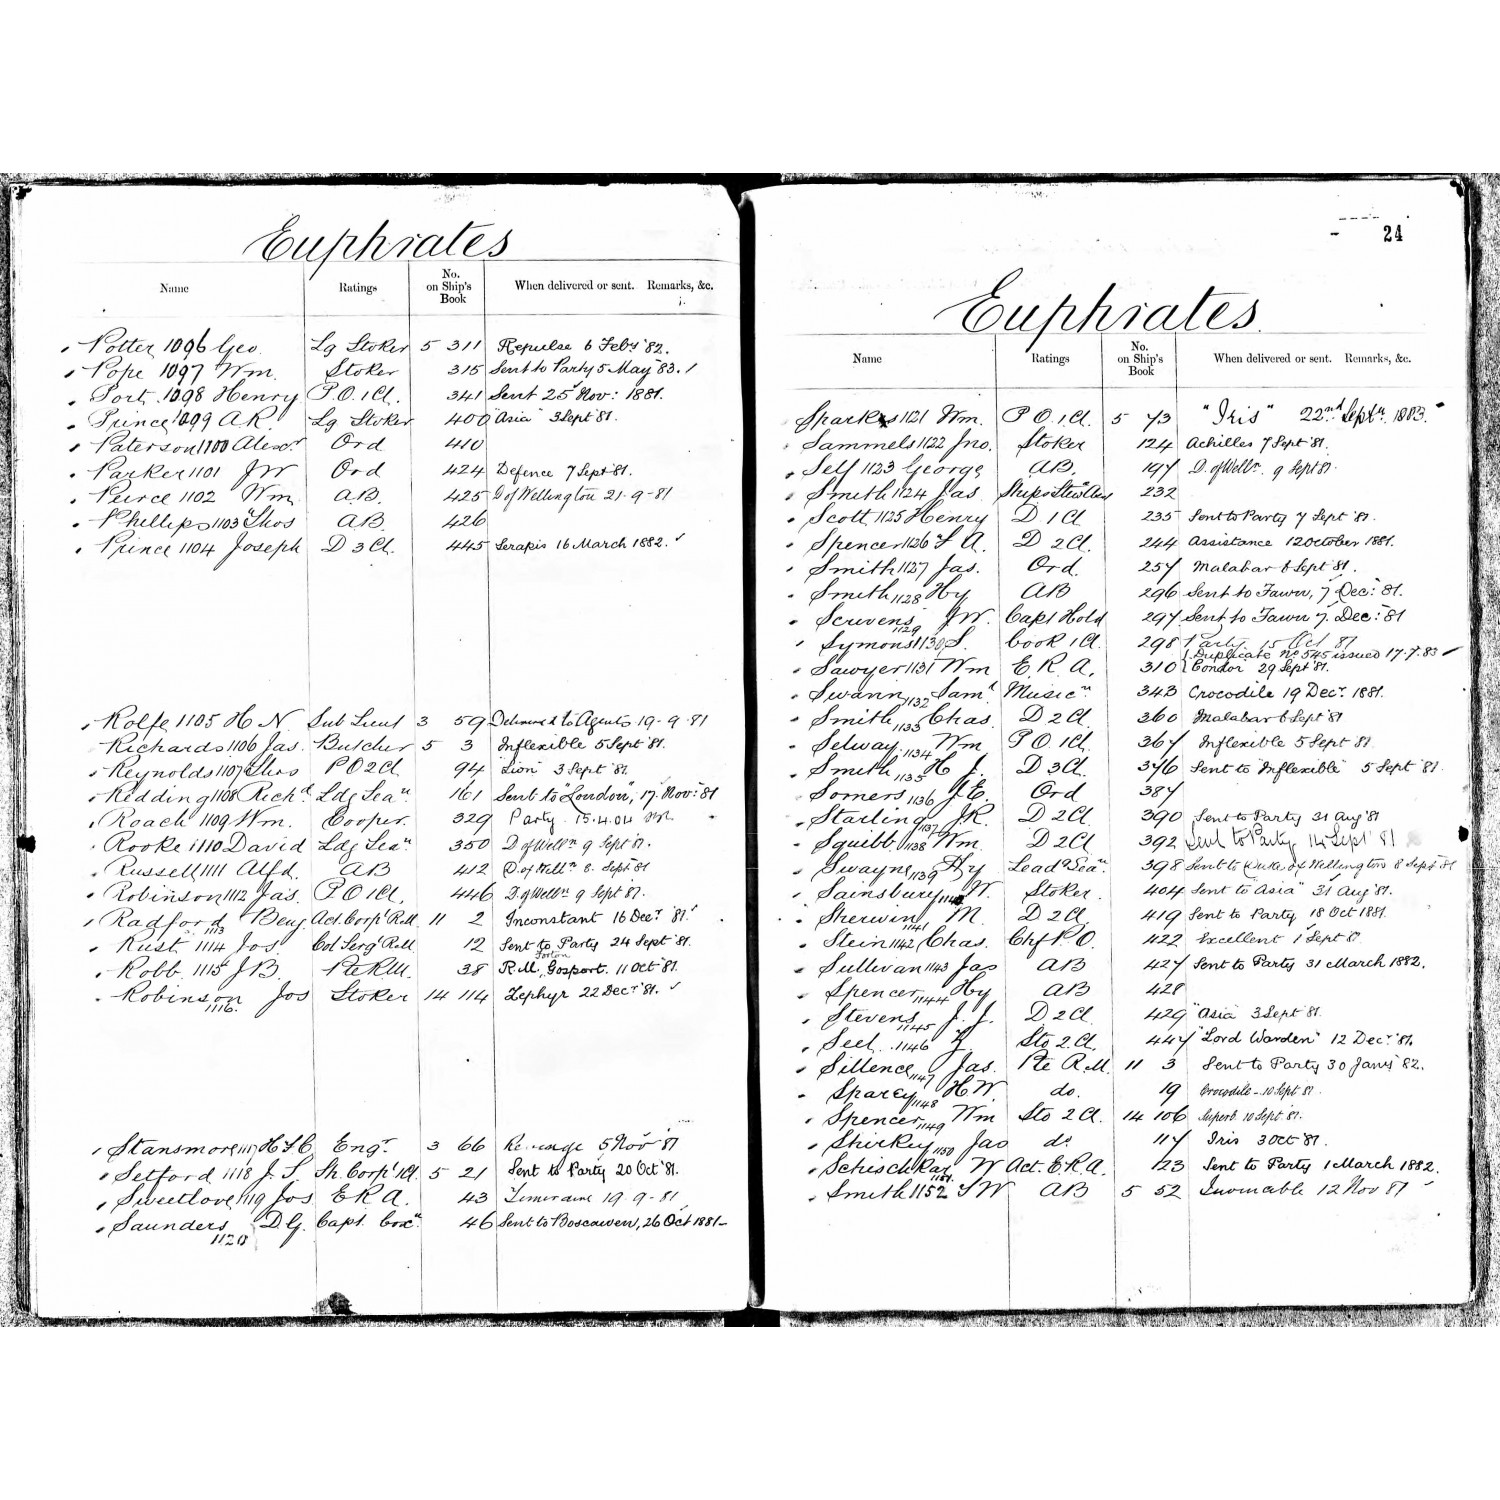 Euphrates
Name Ratings No. on Ship's Book When delivered or sent. Remarks, &c.
Potter 1096 Geo Lg Stoker 5 311 Repulse 6 Feby '82.
Pope 1097 Wm. Stoker 315 Sent to Party 5 May '83.
Port 1098 Henry P.O. 1 Cl. 341 Sent 25 Nov: 1881.
Prince 1099 A.R. Lg Stoker 400 "Asia" 3 Sept '81.
Paterson 1100 Alexr Ord 410
Parker 1101 JW Ord 424 Defence 7 Sept '81.
Peirce 1102 Wm AB. 425 D of Wellington 21-9-81
Phillips 1103 Thos AB. 426
Prince 1104 Joseph D 3 Cl. 445 Serapis 16 March 1882.
Rolfe 1105 H N Sub Lieut 3 59 Delivered to Agents 19-9-81
Richards 1106 Jas. Butcher 5 3 Inflexible 5 Sept '81.
Reynolds 1107 Thos PO 2 Cl 94 "Lion" 3 Sept '81
Ridding 1108 Richd Ldg Sean 161 Sent to "London", 17 Nov: '81
Roach 1109 Wm. Cooper 329 Party 15.4.04
Rooke 1110 David Ldg Sean 350 D of Welln 9 Sept '81.
Russell 1111 Alfd. AB 412 D. of Welln 8. Sept '81
Robinson 1112 Jas P.O 1 Cl. 446 D. of Welln 9 Sept '81.
Radford 1113 Benj Act. Corpl R.M 11 2 Inconstant 16 Decr '81.
Rust 1114 Jos. Col Sergt R.M 12 Sent to Party 24 Sept '81.
Robb 1115 J B. Pte R.M. 38 R.M. Forton Gosport. 11 Oct '81.
Robinson 1116. Jos Stoker 14 114 Zephyr 22 Decr '81.
Stansmore 1117 H F C Engr. 3 66 Revenge 5 Nov '81
Setford 1118 J. S. Sh. Corpl 1 Cl. 5 21 Sent to Party 20 Oct '81.
Sweetlove 1119 Jos E R A. 43 Temeraire 19-9-81
Saunders 1120 D G. Capt. Coxn 46 Sent to Boscawen, 26 Oct 1881-
24
Euphrates
Name Ratings No. on Ship's Book When delivered or sent. Remarks, &c.
Sparkes 1121 Wm. P O. 1 Cl. 5 73 "Iris" 22nd Septr. 1883.
Sammels 1122 Jno. Stoker 124 Achilles 7 Sept '81.
Self 1123 George AB. 197 D. of Welln. 9 Sept '81
Smith 1124 Jas. Ships Stewd 232
Scott 1125 Henry D 1 Cl 235 Sent to Party 7 Sept '81.
Spencer 1126 F A. D 2 Cl. 244 Assistance 12 October 1881.
Smith 1127 Jas. Ord. 257 Malabar 6 Sept '81.
Smith 1128 Hy AB 296 Sent to Fawn, 7 Dec: '81.
Scrivens 1129 JW. Capt Hold 297 Sent to Fawn 7. Dec: '81
Symons 1130 S. Cook 1 Cl. 298 Party 15 Oct 81
Duplicate No 545 issued 17.7.83
Sawyer 1131 Wm E. R. A. 310 Condor 29 Sept '81.
Swann 1132 Saml Musicn 343 Crocodile 19 Decr. 1881.
Smith 1133 Chas. D 2 Cl. 360 Malabar 6 Sept '81
Selway 1134 Wm P O. 1 Cl. 367 Inflexible 5 Sept '81.
Smith 1135 H J. D 3 Cl. 376 Sent to Inflexible 5 Sept '81.
Somers 1136 J.E. Ord 387
Starling 1137 J.R. D 2 Cl. 390 Sent to Party 31 Aug '81
Squibb 1138 Wm. D 2 Cl 392 Sent to Party 14 Sept '81
Swayne 1139 Hy Leadg Sean 398 Sent to Duke of Wellington 8 Sept '81
Sainsbury 1140 W. Stoker 404 Sent to "Asia" 31 Aug '81.
Sherwin 1141 M. D 2 Cl. 419 Sent to Party 18 Oct 1881.
Stein 1142 Chas. Chf P.O. 422 Excellent 1 Sept '81
Sullivan 1143 Jas AB 427 Sent to Party 31 March 1882.
Spencer 1144 Hy AB 428
Stevens 1145 J. J. D 2 Cl. 429 "Asia" 3 Sept '81.
Seel 1146 Sto 2. Cl. 447 "Lord Warden" 12 Decr '81.
Sillence 1147 Jas. Pte R.M. 11 3 Sent to Party 30 Jany '82.
Sparey 1148 H.W do. 19 Crocodile - 10 Sept '81.
Spencer 1149 Wm Sto 2 Cl. 14 106 Superb 10 Sept '81.
Shirkey 1150 Jas do 117 Iris 3 Oct '81.
Schischkar 1151. W Act. E.R.A. 123 Sent to Party 1 March 1882.
Smith 1152 F W AB 5 52 Invincible 12 Nov 81